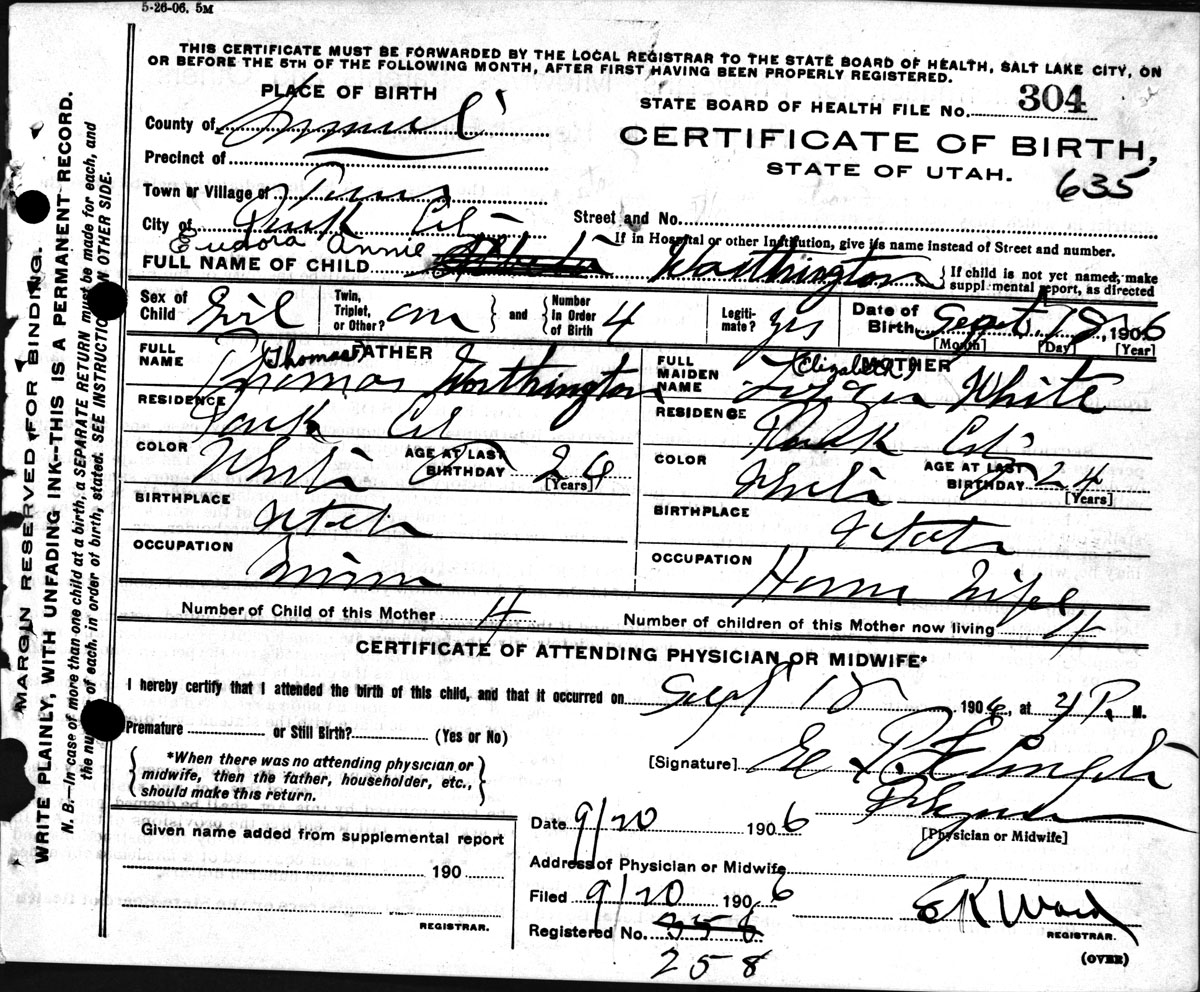 5-26-06. 5M
THIS CERTIFICATE MUST BE FORWARDED BY THE LOCAL REGISTRAR TO THE STATE BOARD OF HEALTH, SALT LAKE CITY, ON
OR BEFORE THE 5TH OF THE FOLLOWING MONTH, AFTER FIRST HAVING BEEN PROPERLY REGISTERED.
PLACE OF BIRTH
STATE BOARD OF HEALTH FILE No. 304
County of Summit
CERTIFICATE OF BIRTH,
Precinct of
STATE OF UTAH.
635
Town or Village of
City of Park City
Street and No.
If in Hospital or other Institution, give its name instead of Street and number.
Eudora Annie
FULL NAME OF CHILD Worthington
{ If child is not yet named, make
supplemental report, as directed
Sex of Child Girl
Twin, Triplet, or Other? one } and { Number In Order of Birth 4
Legitimate? yes
Date of Birth Sept 18, 1906
[Month] [Day] [Year]
FATHER
FULL NAME Thomas Worthington
(Thomas)
RESIDENCE Park City
COLOR White
AGE AT LAST BIRTHDAY 24
[Years]
BIRTHPLACE Utah
OCCUPATION Miner
MOTHER
FULL MAIDEN NAME White
(Elizabeth)
RESIDENCE Park City
COLOR White
AGE AT LAST BIRTHDAY 24
[Years]
BIRTHPLACE Utah
OCCUPATION House Wife
Number of Child of this Mother 4
Number of children of this Mother now living 4
CERTIFICATE OF ATTENDING PHYSICIAN OR MIDWIFE*
I hereby certify that I attended the birth of this child, and that it occurred on Sept 18 1906, at P. M.
Premature or Still Birth? (Yes or No)
{ *When there was no attending physician or
midwife, then the father, householder, etc.,
should make this return. }
[Signature]
[Physician or Midwife]
Date 9/20 1906
Given name added from supplemental report
190
REGISTRAR.
Address of Physician or Midwife
Filed 9/20 1906
E K Ward
REGISTRAR.
Registered No. 358
258
(OVER)
MARGIN RESERVED FOR BINDING.
WRITE PLAINLY, WITH UNFADING INK—THIS IS A PERMANENT RECORD.
N. B.—In case of more than one child at a birth, a SEPARATE RETURN must be made for each, and
the number of each, in order of birth, stated. SEE INSTRUCTIONS ON OTHER SIDE.